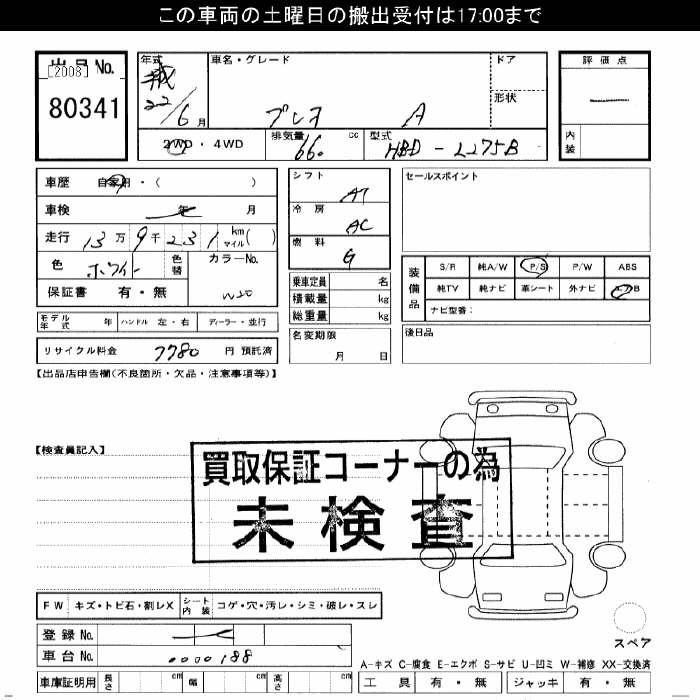 この車両の土曜日の搬出受付は17:00まで
出品No.
[2008]
80341
年式
22/6月
車名・グレード
プレオ A
ドア
形状
評価点
内装
2WD・4WD
排気量 660 cc
型式 HBD-L275B
車歴 自家用・( )
車検 年 月
走行 13万9千231 km マイル( )
色 ホワイト
色替
カラーNo.
W20
保証書 有・無
シフト AT
冷房 AC
燃料 G
乗車定員 名
積載量 kg
総重量 kg
名変期限
月 日
セールスポイント
装備品
S/R 純A/W P/S P/W ABS
純TV 純ナビ 革シート 外ナビ エアB
ナビ型番:
後日品
モデル年式 年 ハンドル 左・右 ディーラー・並行
リサイクル料金 7780 円 預託済
【出品店申告欄(不良箇所・欠品・注意事項等)】
【検査員記入】
買取保証コーナーの為
未検査
FW キズ・トビ石・割レX シート内装 コゲ・穴・汚レ・シミ・破レ・スレ
登録No.
車台No. 0000188
車庫証明用 長さ cm 幅 cm 高さ cm
スペア
A-キズ C-腐食 E-エクボ S-サビ U-凹ミ W-補修 XX-交換済
工具 有・無 ジャッキ 有・無